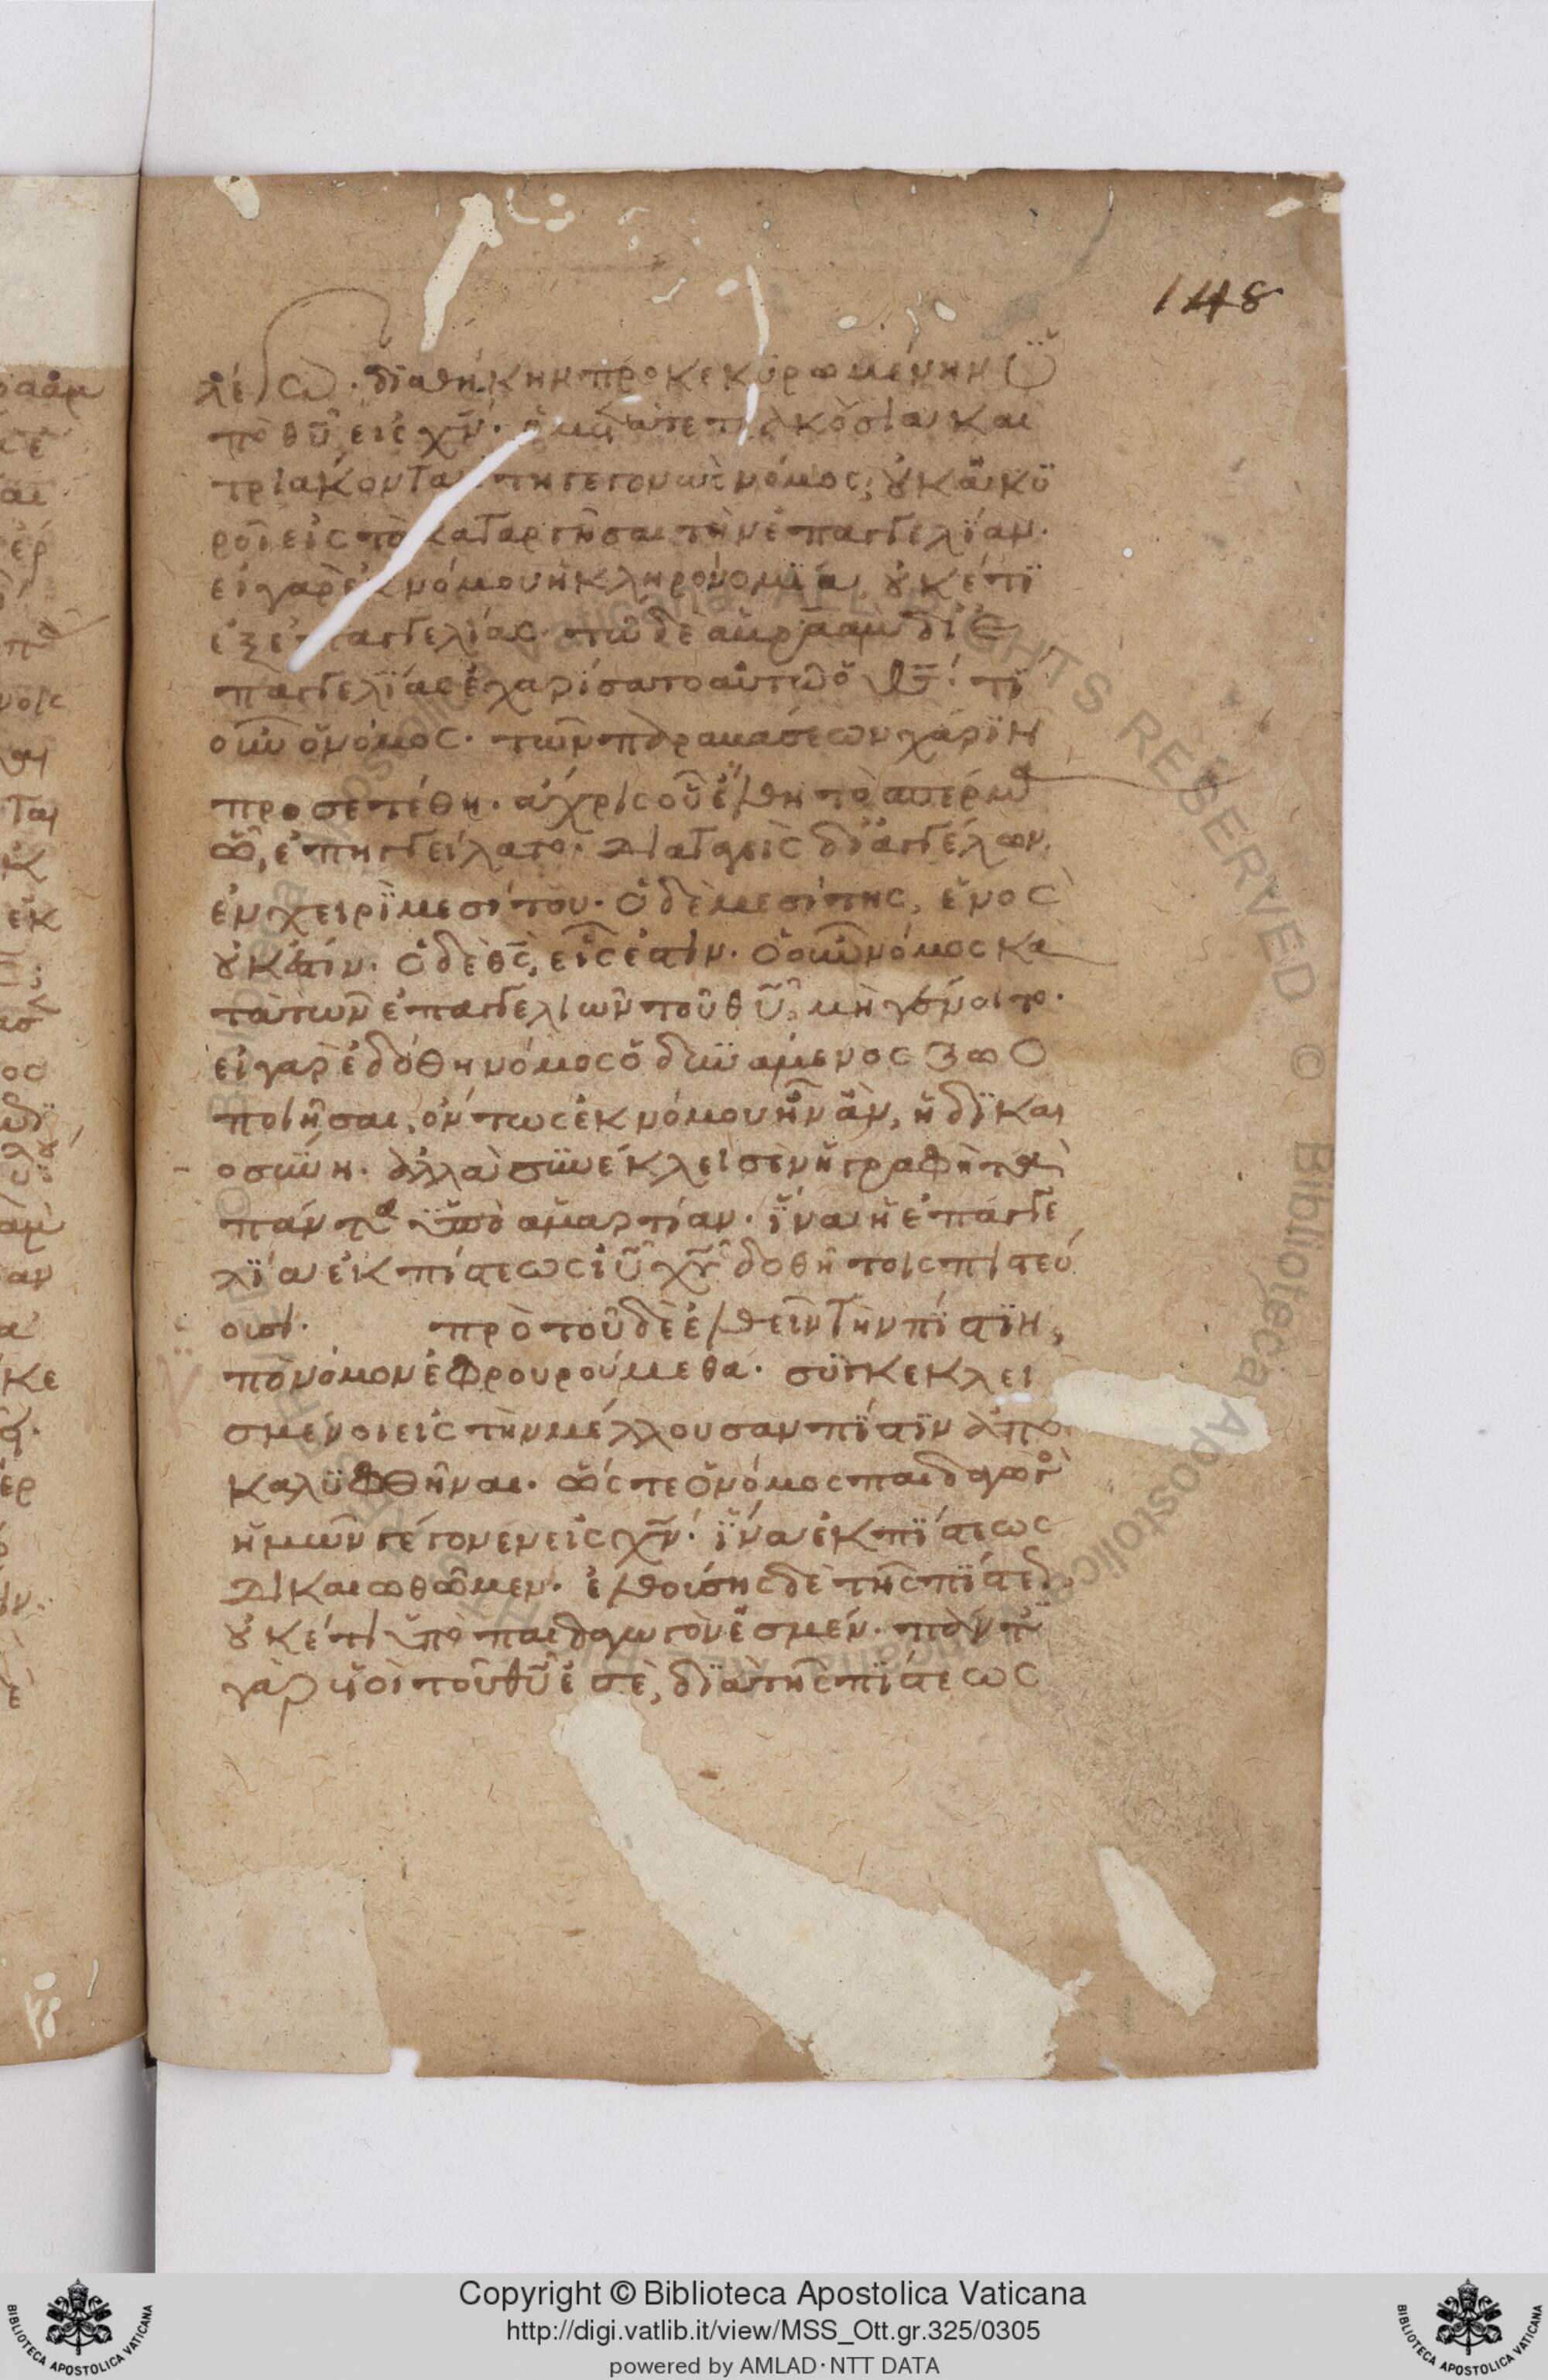 148
λέγω· διαθήκην προκεκυρωμένην ὑ
πὸ θῦ εἰς χν̄· ὁ μετὰ τετρακόσια και
τριάκοντα ἔτη γεγονὼς νόμος, οὐκ ἀκυ
ροῖ εἰς τὸ καταργῆσαι τὴν ἐπαγγελίαν·
εἰ γὰρ ἐκ νόμου ἡ κληρονομία, οὐκέτι
ἐξ ἐπαγγελίας· τῶ δὲ ἀβραὰμ δι ἐ
παγγελίας ἐχαρίσατο αὐτῶ ὁ θς̄· τί
οὖν ὁ νόμος· τῶν παραβάσεων χάριν
προσετέθη· ἄχρις οὗ ἔλθη τὸ σπέρμα
ὧ, ἐπηγγείλατο· διαταγεὶς δι ἀγγέλων·
ἐν χειρὶ μεσίτου· ὁ δὲ μεσίτης, ἑνὸς
οὐκ ἔστιν· ὁ δὲ θς̄, εἷς ἐστίν· ὁ οὖν νόμος κα
τὰ τῶν ἐπαγγελιῶν τοῦ θῦ, μὴ γένοιτο·
εἰ γὰρ ἐδόθη νόμος ὁ δυνάμενος ζωο
ποιῆσαι, ὄντως ἐκ νόμου ἦν ἂν, ἡ δικαι
οσύνη· ἀλλὰ συνέκλεισεν ἡ γραφὴ τὰ
πάντα ὑπὸ ἁμαρτίαν· ἵνα ἡ ἐπαγγε
λία ἐκ πίστεως ἰῦ χῦ δοθῆ τοις πιστεύ
ουσι· πρὸ τοῦ δὲ ἐλθεῖν τὴν πίστιν,
πὸ νόμον ἐφρουρούμεθα· συγκεκλει
σμένοι εἰς τὴν μέλλουσαν πίστιν ἀπο
καλυφθῆναι· ὥςτε ὁ νόμος παιδαγωγὸς
ἡμῶν γέγονεν εἰς χν̄· ἵνα ἐκ πίστεως
δικαιωθῶμεν· ἐλθούσης δὲ τῆς πίστεως
οὐκέτι ὑπὸ παιδαγωγὸν ἐσμέν· πάντες
γὰρ υἱοὶ τοῦ θῦ ἐστὲ, διὰ τῆς πίστεως
Copyright © Biblioteca Apostolica Vaticana
http://digi.vatlib.it/view/MSS_Ott.gr.325/0305
powered by AMLAD·NTT DATA